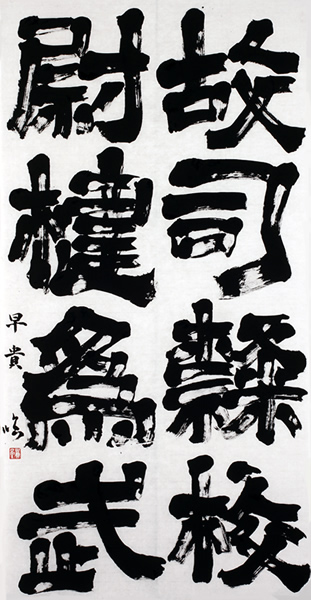 故司隸校
尉楗為武
早貴臨